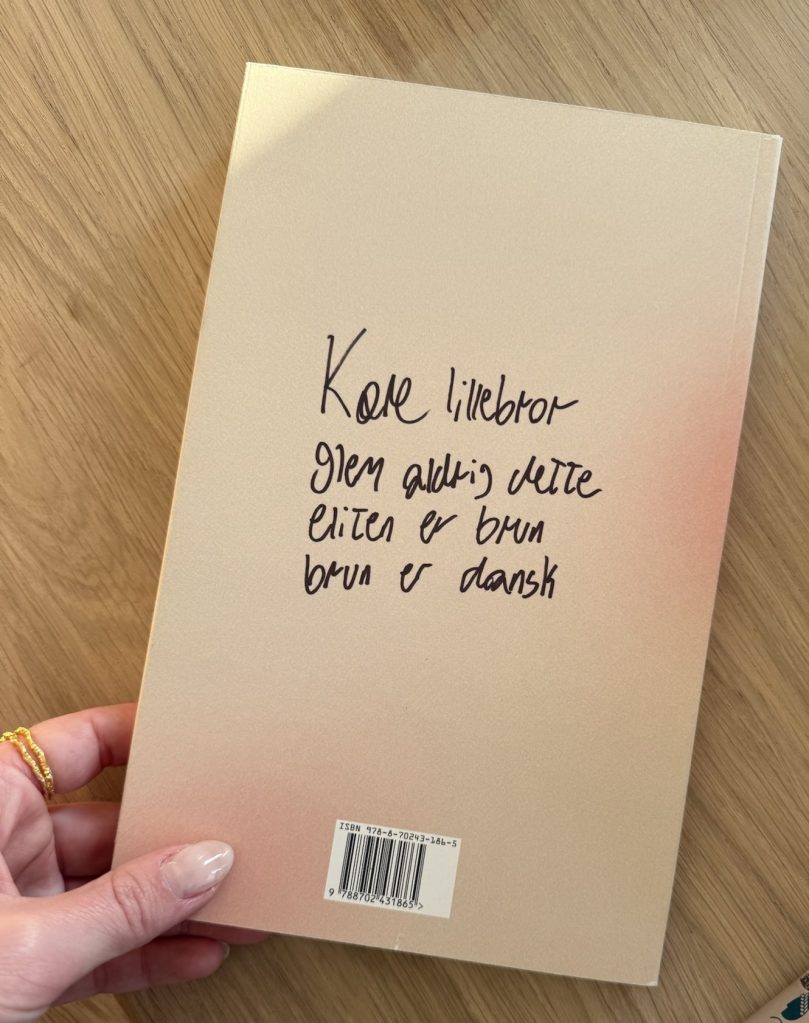 Kære lillebror
glem aldrig dette
eliten er brun
brun er dansk
ISBN 978-8-70243-186-5
9 788702 431865 >